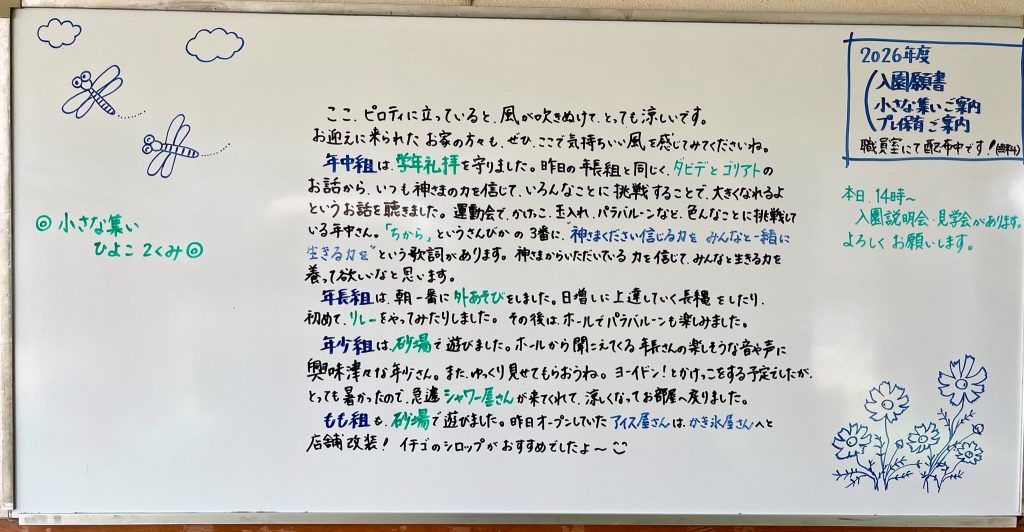 ここ、ピロティに立っていると、風が吹きぬけて、とっても涼しいです。
お迎えに来られた お家の方々も、ぜひ、ここで気持ちいい風を感じてみてくださいね。
年中組は、学年礼拝を守りました。昨日の年長組と同じく、ダビデとゴリアトの
お話から、いつも神さまの力を信じて、いろんなことに挑戦することで、大きくなれるよ
というお話を聴きました。運動会で、かけっこ、玉入れ、パラバルーンなど、色んなことに挑戦して
いる年中さん。「ちから」というさんびかの3番に、“神さまください信じる力を みんなと一緒に
生きる力を”という歌詞があります。神さまからいただいている力を信じて、みんなと生きる力を
養って欲しいなと思います。
年長組は、朝一番に外あそびをしました。日増しに上達していく長縄をしたり、
初めて、リレーをやってみたりしました。その後は、ホールでパラバルーンも楽しみました。
年少組は、砂場で遊びました。ホールから聞こえてくる年長さんの楽しそうな音や声に
興味津々な年少さん。また、ゆっくり見せてもらおうね。ヨーイドン！とかけっこをする予定でしたが、
とっても暑かったので、急遽シャワー屋さんが来てくれて、涼しくなってお部屋へ戻りました。
もも組も、砂場で遊びました。昨日オープンしていたアイス屋さんは、かき氷屋さんへと
店舗改装！ イチゴのシロップがおすすめでしたよ〜
◎小さな集い
ひよこ2くみ◎
2026年度
入園願書
小さな集いご案内
プレ保育ご案内
職員室にて配布中です！(無料)
本日、14時〜
入園説明会・見学会があります。
よろしくお願いします。